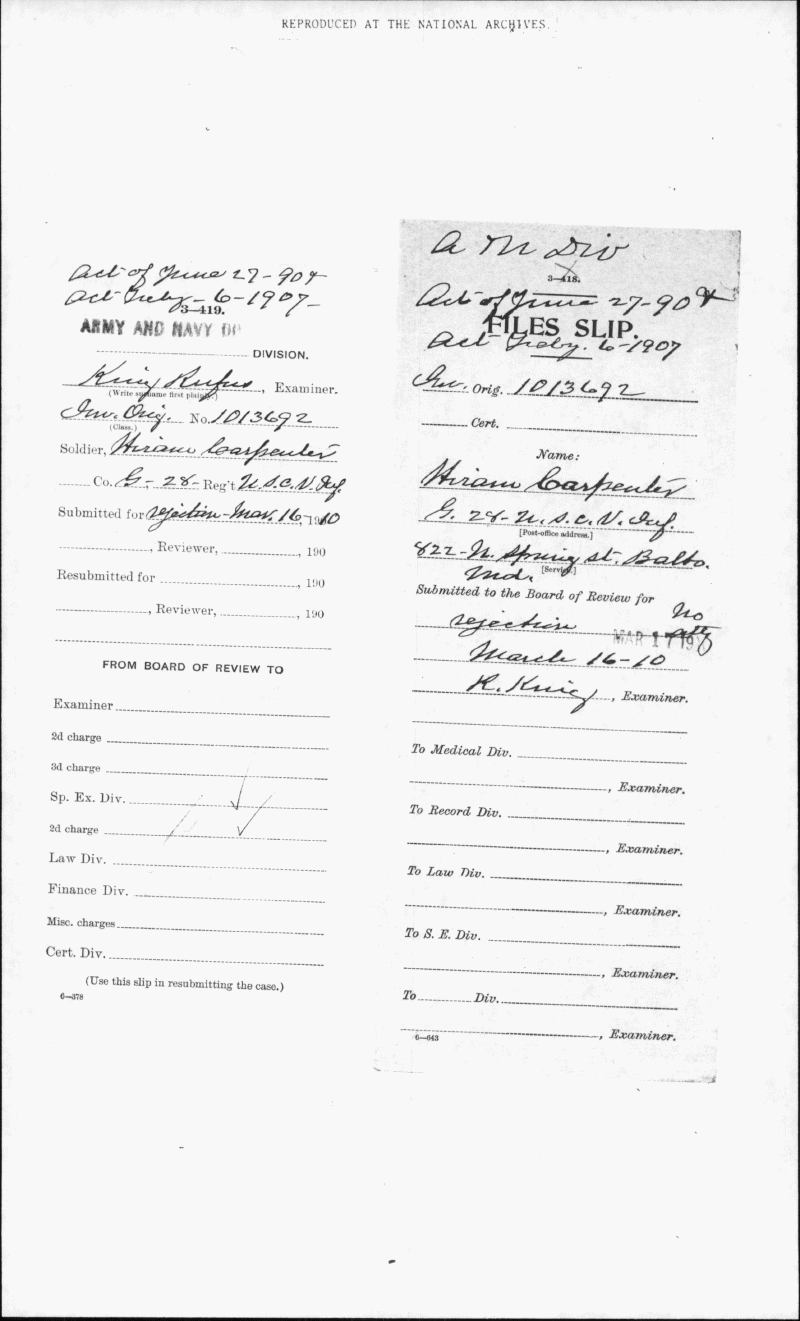 REPRODUCED AT THE NATIONAL ARCHIVES.
Act of June 27-904
Act Feby-6-1907-
3-419.
ARMY AND NAVY
DIVISION.
King Rufus, Examiner.
(Write surname first plainly.)
Inv. Orig. No. 1013692
(Class.)
Soldier, Hiram Carpenter
Co. G,- 28- Reg't U.S.C.V. Inf.
Submitted for rejection-Mar. 16, 1910
, Reviewer, , 190
Resubmitted for , 190
, Reviewer, , 190
FROM BOARD OF REVIEW TO
Examiner
2d charge
3d charge
Sp. Ex. Div.
2d charge
Law Div.
Finance Div.
Misc. charges
Cert. Div.
(Use this slip in resubmitting the case.)
6-378
A M Div
3-418.
Act of June 27-904
FILES SLIP.
Act Feby. 6-1907
Inv. Orig. 1013692
Cert.
Name:
Hiram Carpenter
G. 28-U.S.C.V. Inf.
[Post-office address.]
822-N. Spring st. Balto.
Md.
[Service.]
Submitted to the Board of Review for
No
rejection
atty
MAR 17 19
March 16-10
R. King, Examiner.
To Medical Div.
, Examiner.
To Record Div.
, Examiner.
To Law Div.
, Examiner.
To S. E. Div.
, Examiner.
To Div.
, Examiner.
6-643